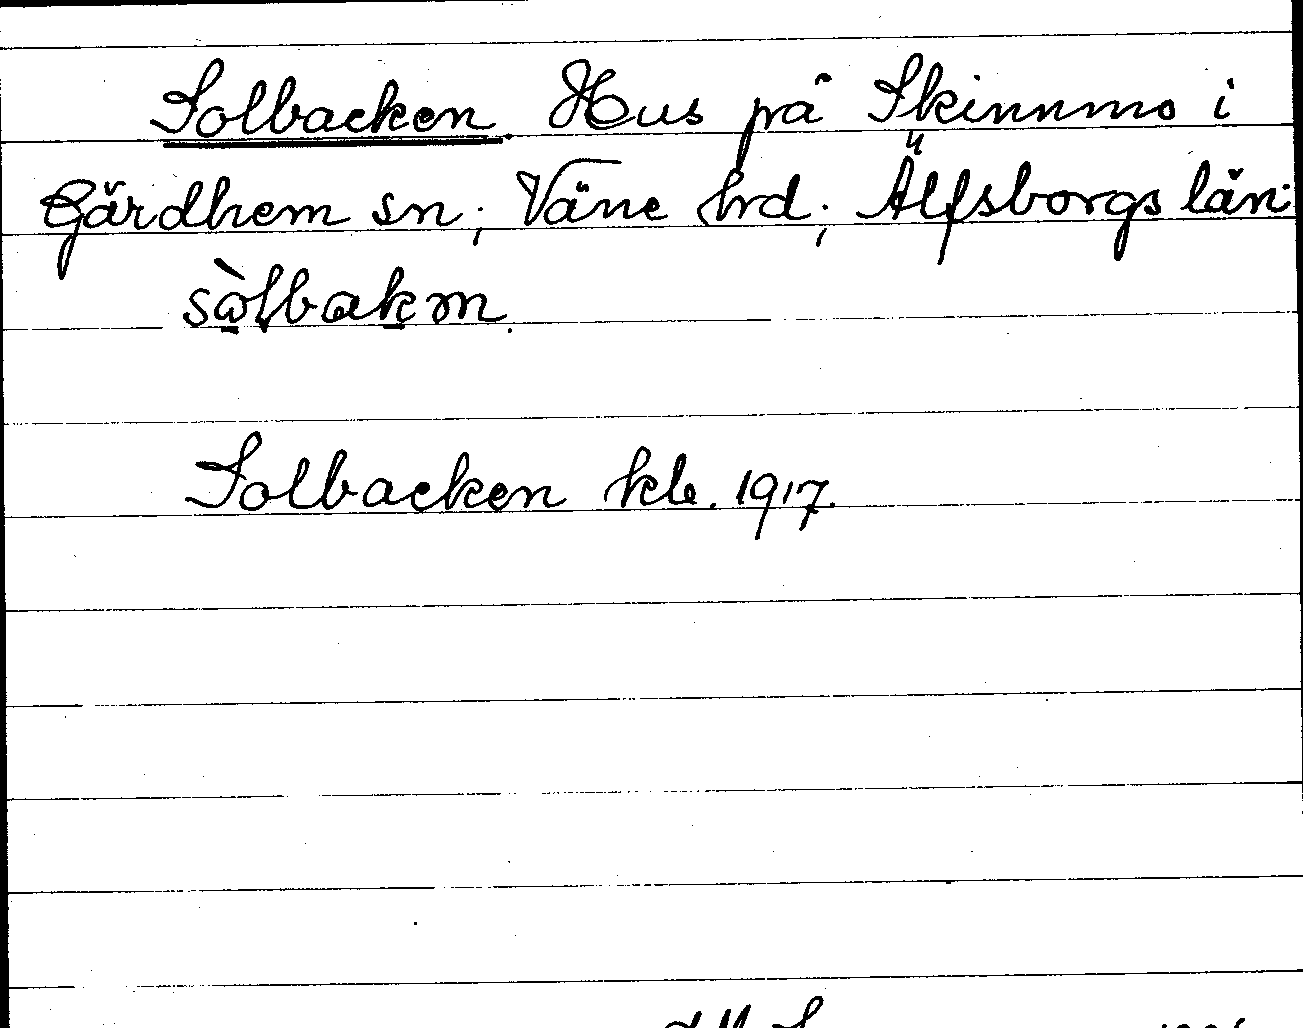 Solbacken. Hus på Skinnmo i
Gärdhem sn; Väne hrd; Älfsborgs län.
Solbacken klb. 1917.